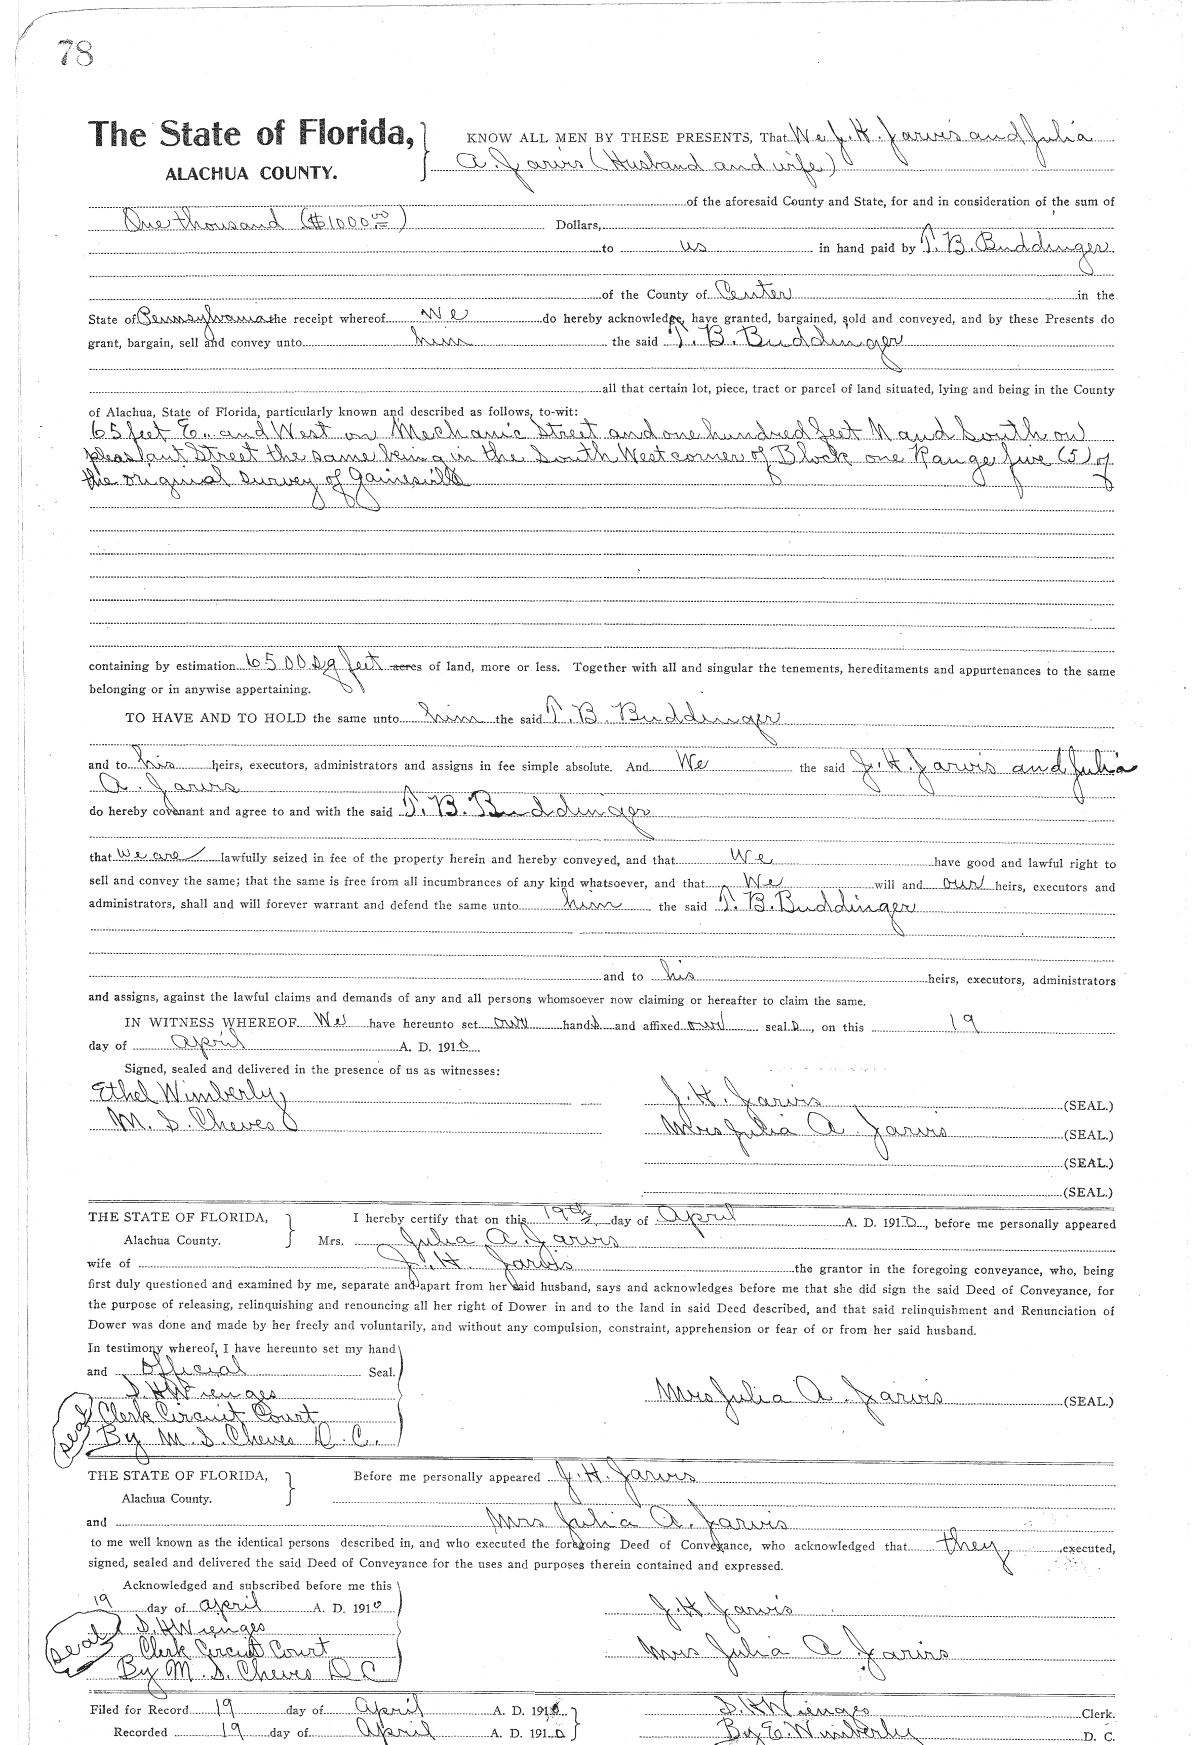 78
The State of Florida, KNOW ALL MEN BY THESE PRESENTS, That We J. H. Jarvis and Julia
ALACHUA COUNTY. A. Jarvis (Husband and wife)
of the aforesaid County and State, for and in consideration of the sum of
One thousand ($1000.00) Dollars,
to us in hand paid by T. B. Buddinger
of the County of Center in the
State of Pennsylvania the receipt whereof We do hereby acknowledge, have granted, bargained, sold and conveyed, and by these Presents do
grant, bargain, sell and convey unto him the said T. B. Buddinger
all that certain lot, piece, tract or parcel of land situated, lying and being in the County
of Alachua, State of Florida, particularly known and described as follows, to-wit:
65 feet E. and West on Mechanic Street and one hundred feet N and South on
pleasant Street the same being in the South West corner of Block one Range five (5) of
the original survey of Gainesville
containing by estimation 6500 sq feet acres of land, more or less. Together with all and singular the tenements, hereditaments and appurtenances to the same
belonging or in anywise appertaining.
TO HAVE AND TO HOLD the same unto him the said T. B. Buddinger
and to his heirs, executors, administrators and assigns in fee simple absolute. And We the said J. H. Jarvis and Julia
A. Jarvis
do hereby covenant and agree to and with the said T. B. Buddinger
that we are lawfully seized in fee of the property herein and hereby conveyed, and that We have good and lawful right to
sell and convey the same; that the same is free from all incumbrances of any kind whatsoever, and that We will and our heirs, executors and
administrators, shall and will forever warrant and defend the same unto him the said T. B. Buddinger
and to his heirs, executors, administrators
and assigns, against the lawful claims and demands of any and all persons whomsoever now claiming or hereafter to claim the same.
IN WITNESS WHEREOF We have hereunto set our hands and affixed our seals, on this 19
day of April A. D. 1910
Signed, sealed and delivered in the presence of us as witnesses:
Ethel Wimberly J. H. Jarvis (SEAL.)
M. S. Cheves Mrs Julia A. Jarvis (SEAL.)
(SEAL.)
(SEAL.)
THE STATE OF FLORIDA, I hereby certify that on this 19th day of April A. D. 1910, before me personally appeared
Alachua County. Mrs. Julia A. Jarvis
wife of J. H. Jarvis the grantor in the foregoing conveyance, who, being
first duly questioned and examined by me, separate and apart from her said husband, says and acknowledges before me that she did sign the said Deed of Conveyance, for
the purpose of releasing, relinquishing and renouncing all her right of Dower in and to the land in said Deed described, and that said relinquishment and Renunciation of
Dower was done and made by her freely and voluntarily, and without any compulsion, constraint, apprehension or fear of or from her said husband.
In testimony whereof, I have hereunto set my hand
and official Seal.
S. H Wienges Mrs Julia A. Jarvis (SEAL.)
seal Clerk Circuit Court
By M. S. Cheves D. C.
THE STATE OF FLORIDA, Before me personally appeared J. H. Jarvis
Alachua County.
and Mrs Julia A. Jarvis
to me well known as the identical persons described in, and who executed the foregoing Deed of Conveyance, who acknowledged that they executed,
signed, sealed and delivered the said Deed of Conveyance for the uses and purposes therein contained and expressed.
Acknowledged and subscribed before me this
19 day of April A. D. 1910 J. H. Jarvis
seal S. H Wienges
Clerk Circuit Court Mrs Julia A Jarvis
By M. S. Cheves D C
Filed for Record 19 day of April A. D. 1910 S. H Wienges Clerk.
Recorded 19 day of April A. D. 1910 By E. Wimberly D. C.